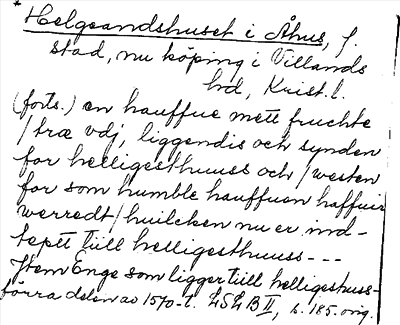 Helgeandshuset i Åhus, f.
stad, nu köping i Villands
hd, Krist. l.
(forts.) en hauffue mett fruchte
/træ vdj, liggendis och synden
for helligesthuuss och /westen
for som humble hauffuen haffuir
werredt/huilcken nu er ind-
teptt tiill helligesthuuss---
Item Enge som ligger tiill helligestuss-
förra delen av 1570-t. LSLB II, s. 185. orig.